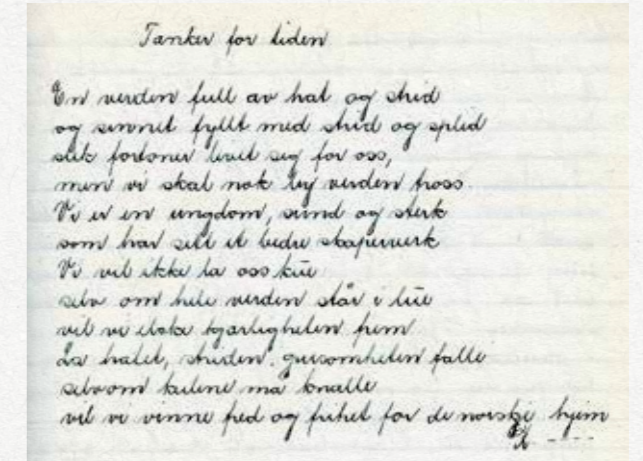 Tanker for tiden
En verden full av hat og strid
og sinnet fyllt med strid og splid
slik fortoner livet seg for oss,
men vi skal nok by verden tross.
Vi er en ungdom, sund og sterk
som har sett et bedre skaperverk
Vi vil ikke la oss kue
selv om hele verden står i lue
vil vi elske kjærligheten frem
La hatet, striden, grusomheten falle
selvom kulene må knalle
vil vi vinne fred og frihet for de norske hjem